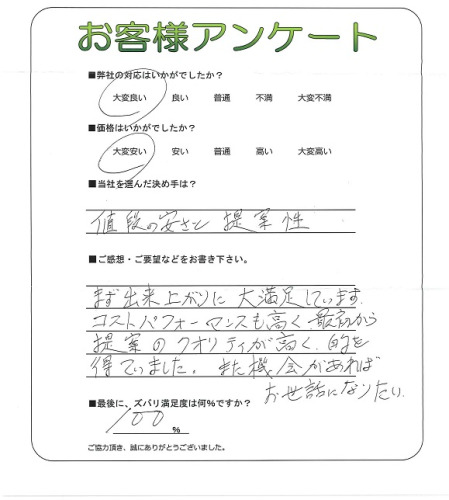 お客様アンケート
■弊社の対応はいかがでしたか?
大変良い 良い 普通 不満 大変不満
■価格はいかがでしたか?
大変安い 安い 普通 高い 大変高い
■当社を選んだ決め手は?
値段の安さと 提案性
■ご感想・ご要望などをお書き下さい。
まず出来上がりに大満足しています。
コストパフォーマンスも高く、最初から
提案のクオリティが高く、的を
得ていました。また機会があれば
お世話になりたい。
■最後に、ズバリ満足度は何%ですか?
100 %
ご協力頂き、誠にありがとうございました。